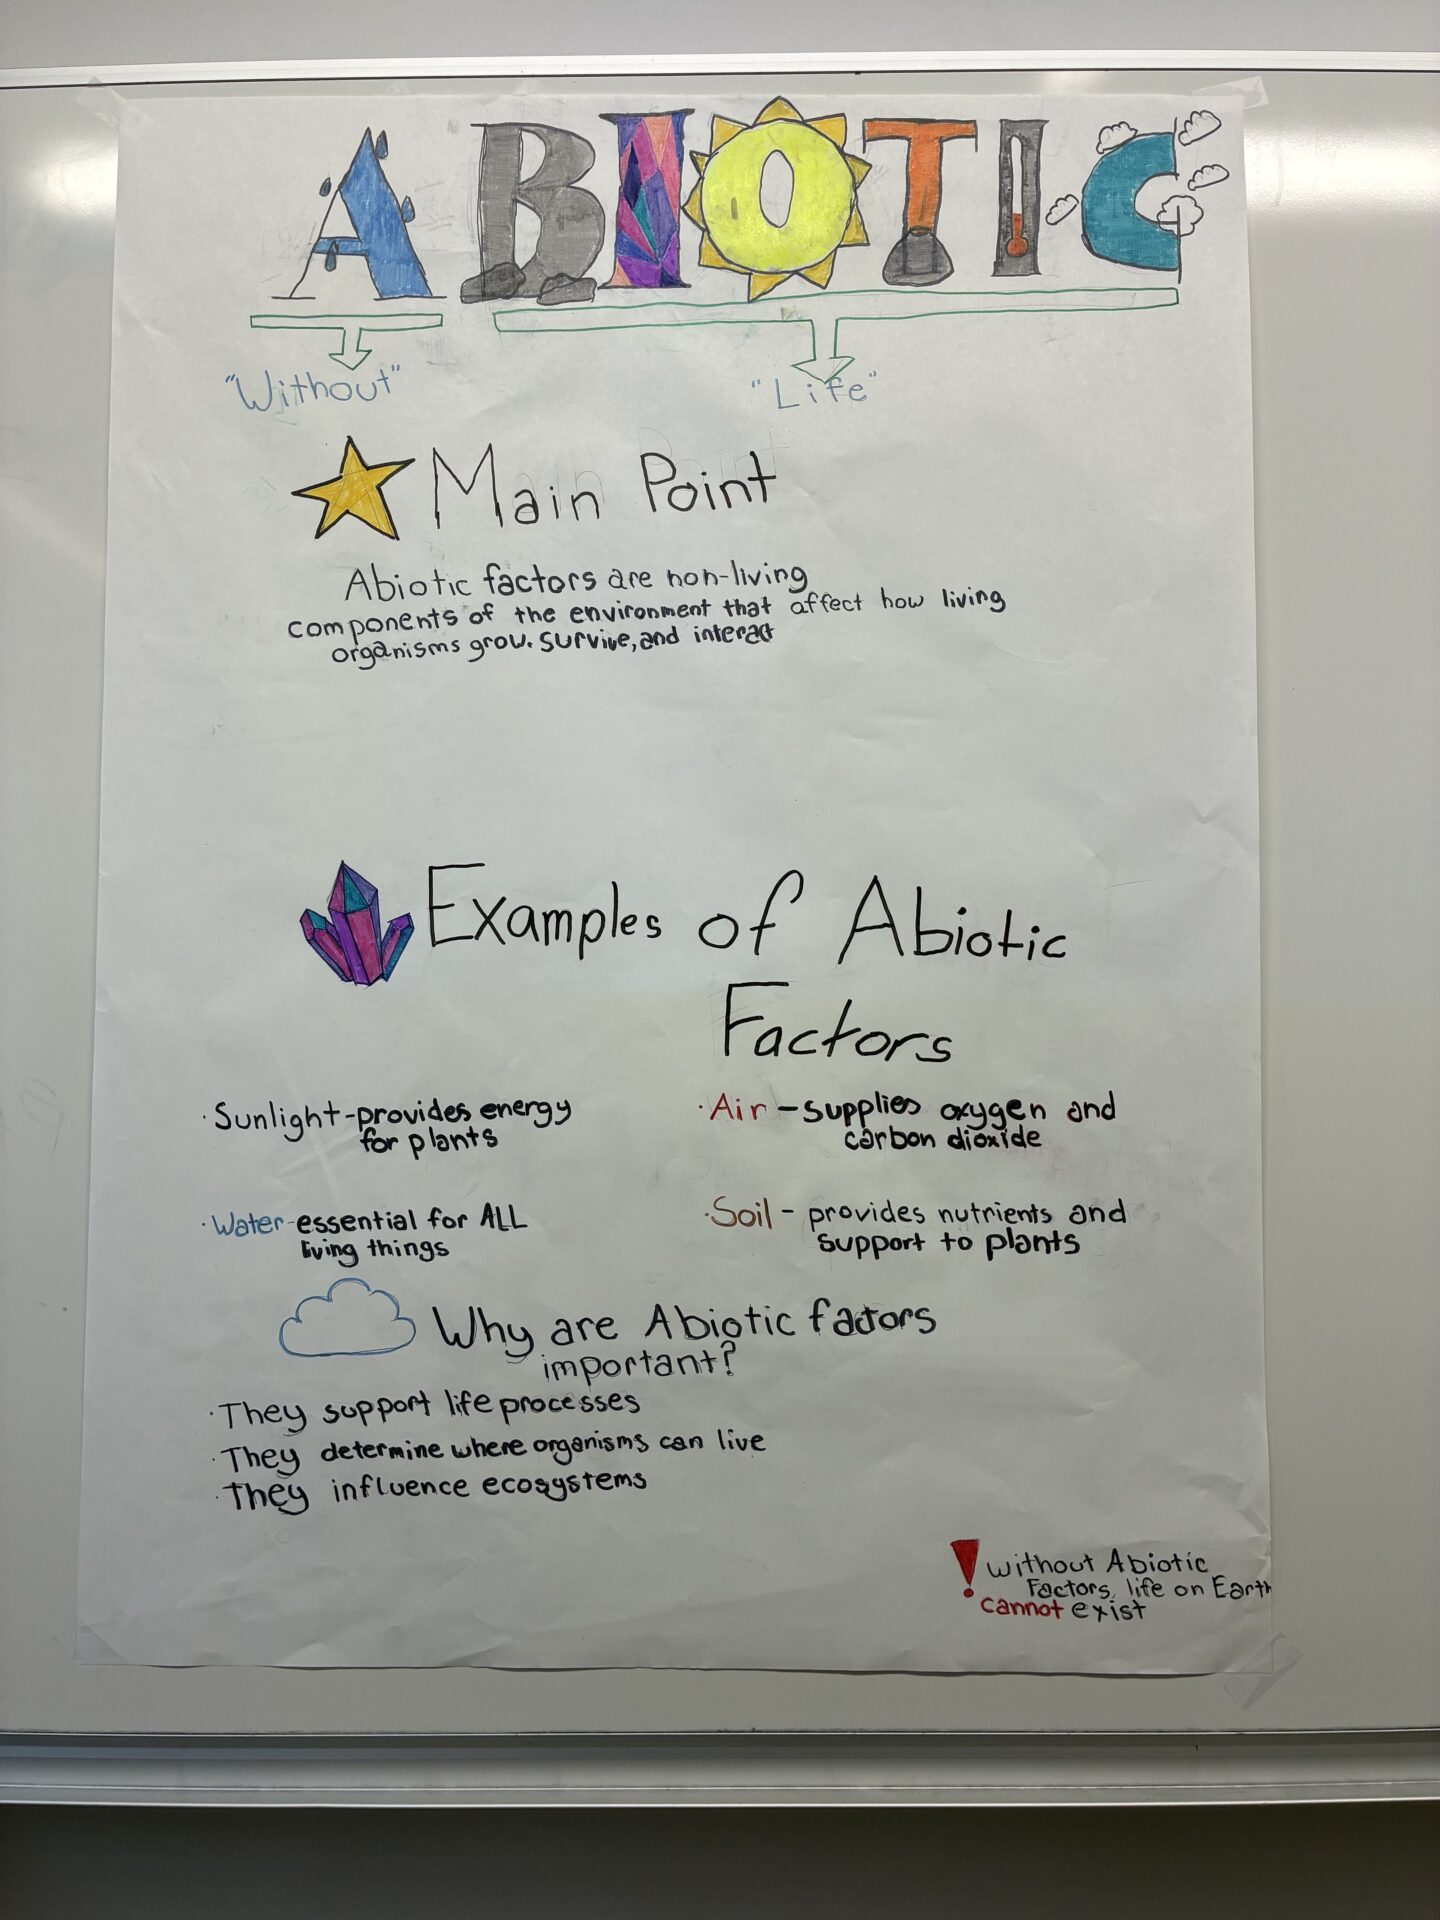 ABIOTIC
"Without" "Life"
Main Point
Abiotic factors are non-living
components of the environment that affect how living
organisms grow. survive, and interact
Examples of Abiotic
Factors
· Sunlight - provides energy
for plants
· Air - supplies oxygen and
carbon dioxide
· Water - essential for ALL
living things
· Soil - provides nutrients and
support to plants
Why are Abiotic factors
important?
· They support life processes
· They determine where organisms can live
· They influence ecosystems
! without Abiotic
Factors, life on Earth
cannot exist